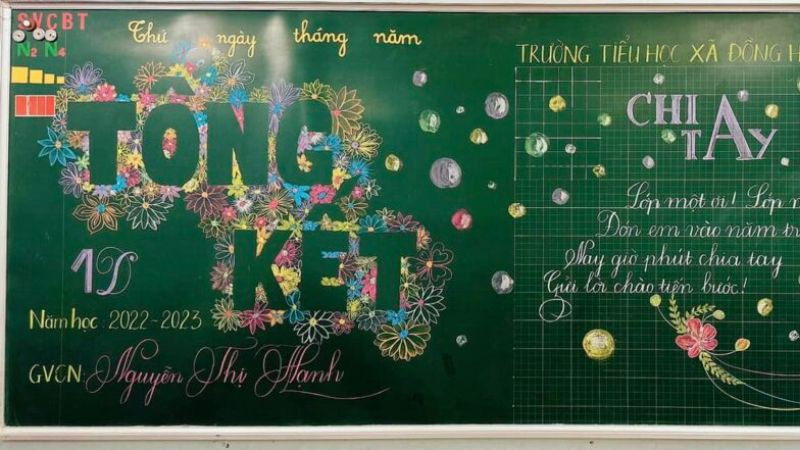 SVCBT
N2 N4
Thứ ngày tháng năm
TỔNG
KẾT
1D
Năm học: 2022-2023
GVCN: Nguyễn Thị Hạnh
TRƯỜNG TIỂU HỌC XÃ ĐỒNG
CHIA
TAY
Lớp một ơi! Lớp
Đón em vào năm
Nay giờ phút chia tay
Gửi lời chào tiến bước!